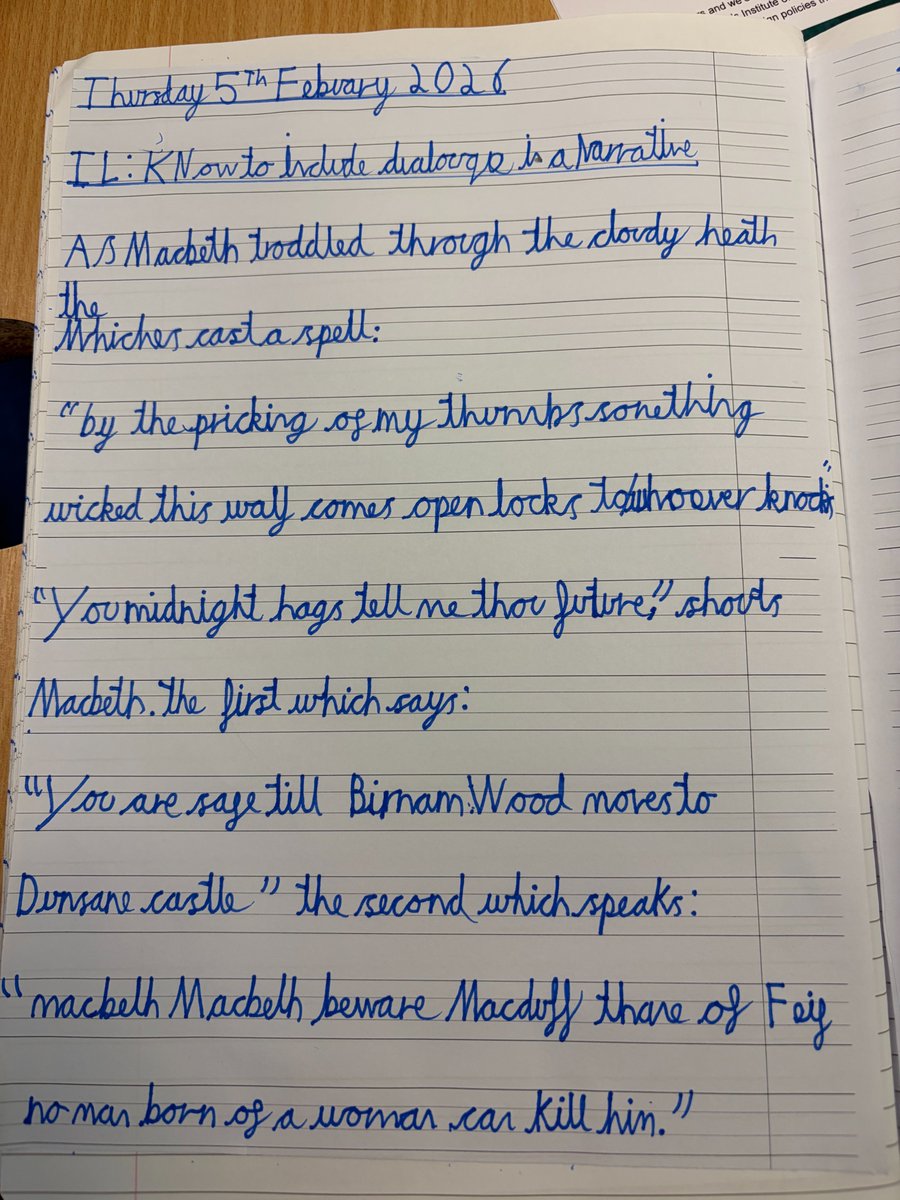 s and we
s Institute o
gn policies th
Thursday 5Th Febuary 2026
IL: KNow to include dialouge in a Narrative
As Macbeth troddled through the cloudy heath
the
Whiches cast a spell:
"by the pricking of my thumbs something
wicked this way comes open locks to whoever knocks"
"You midnight hags tell me thou future," shouts
Macbeth. the first which says:
"You are sage till Birnam Wood moves to
Dunsane castle" the second which speaks:
"macbeth Macbeth beware Macduff thane of Feig
no man born of a woman can kill him."